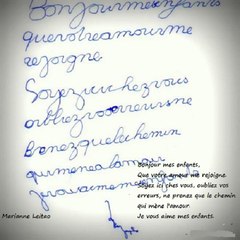 Bonjour mes enfants
que votre amour me
rejoigne
Soyez ici chez vous
oubliez vos erreurs ne
prenez que le chemin
qui mène a l'amour
je vous aime mes enfants
Bonjour mes enfants,
Que votre amour me rejoigne.
Soyez ici ches vous, oubliez vos
erreurs, ne prenez que le chemin
qui mène l'amour
Je vous aime mes enfants.
Marianne Leitao